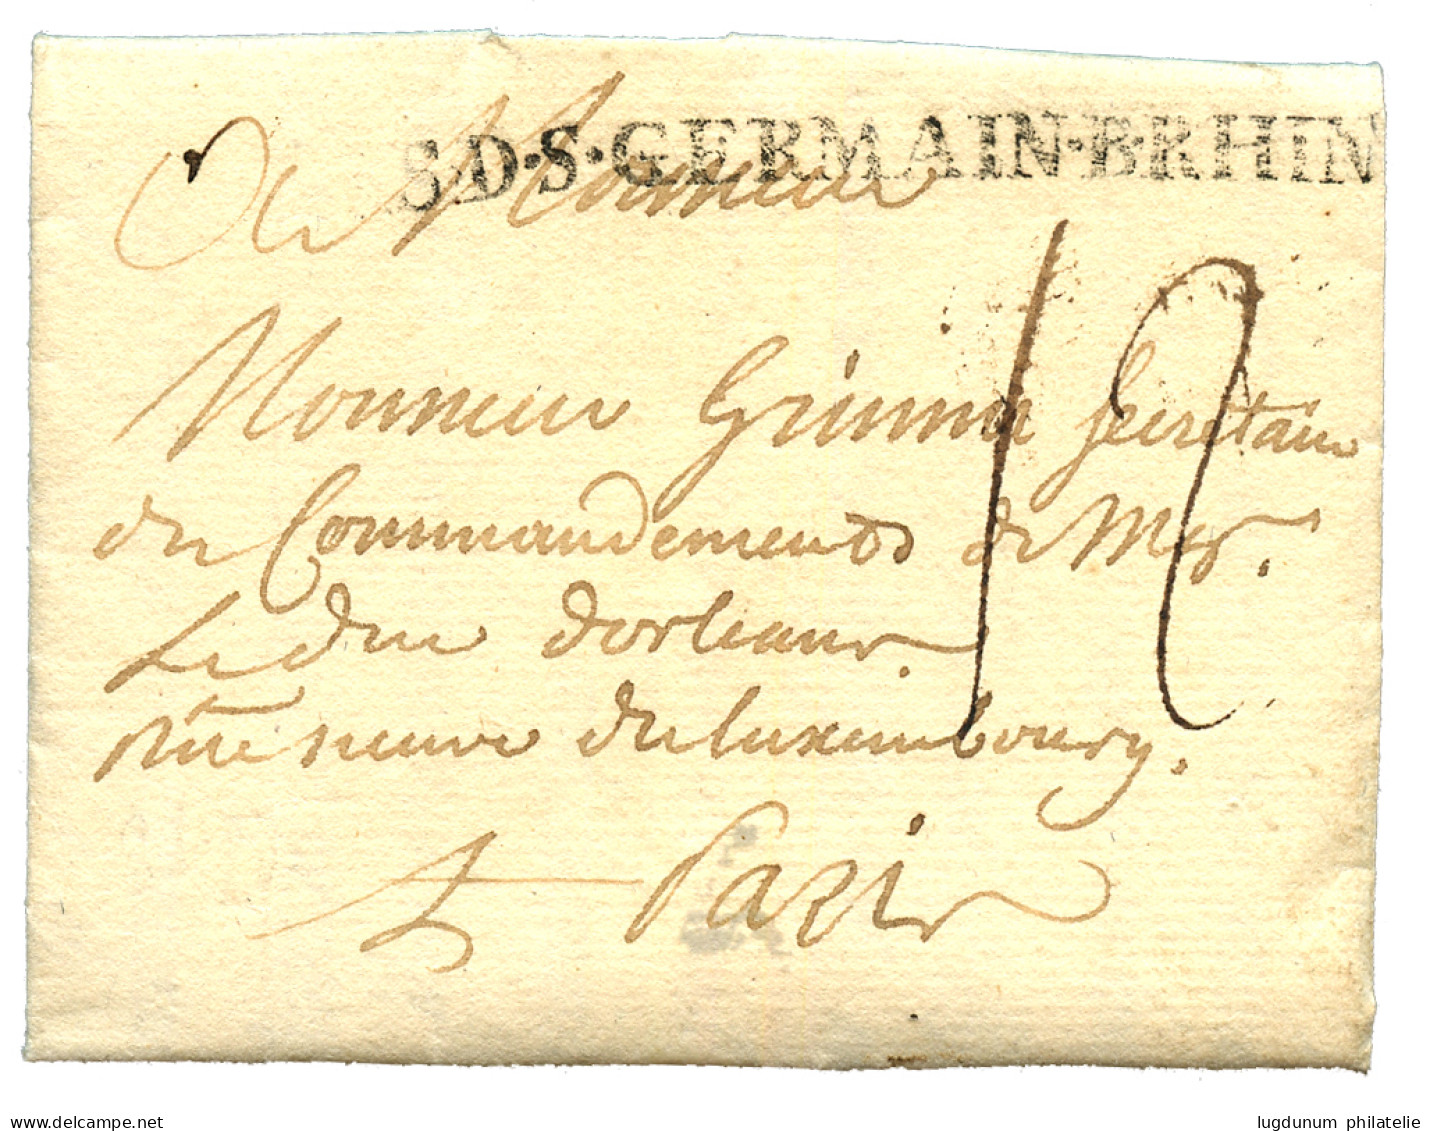 S.D.S.GERMAIN.B.RHIN
A Monsieur
12
Monsieur Grimm Secretaire
des Commandements de Mgr.
Le duc dorleans.
rüe neuve du luxembourg.
A Paris
www.delcampe.net
lugdunum philatelie